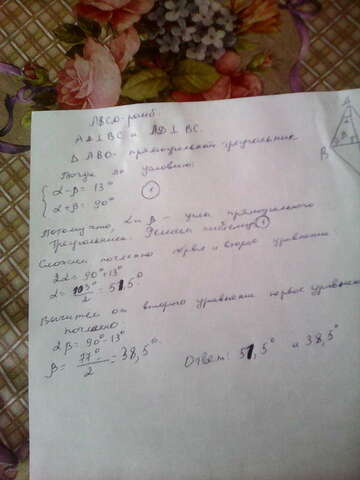 ABCD - ромб.
AD ⊥ BC и AD ⊥ BC.
Δ ABO - прямоугольный треугольник
Тогда по условию:
{ α - β = 13°
{ α + β = 90° (1)
Потому что, α и β - углы прямоугольного
треугольника. Решаем систему (1)
Сложим почленно первое и второе уравнение
2α = 90° + 13°
α = 103°/2 = 51,5°
Вычитаем от второго уравнения первое уравнение
почленно.
2β = 90° - 13°
β = 77°/2 = 38,5°.
Ответ: 51,5° и 38,5°
A
B